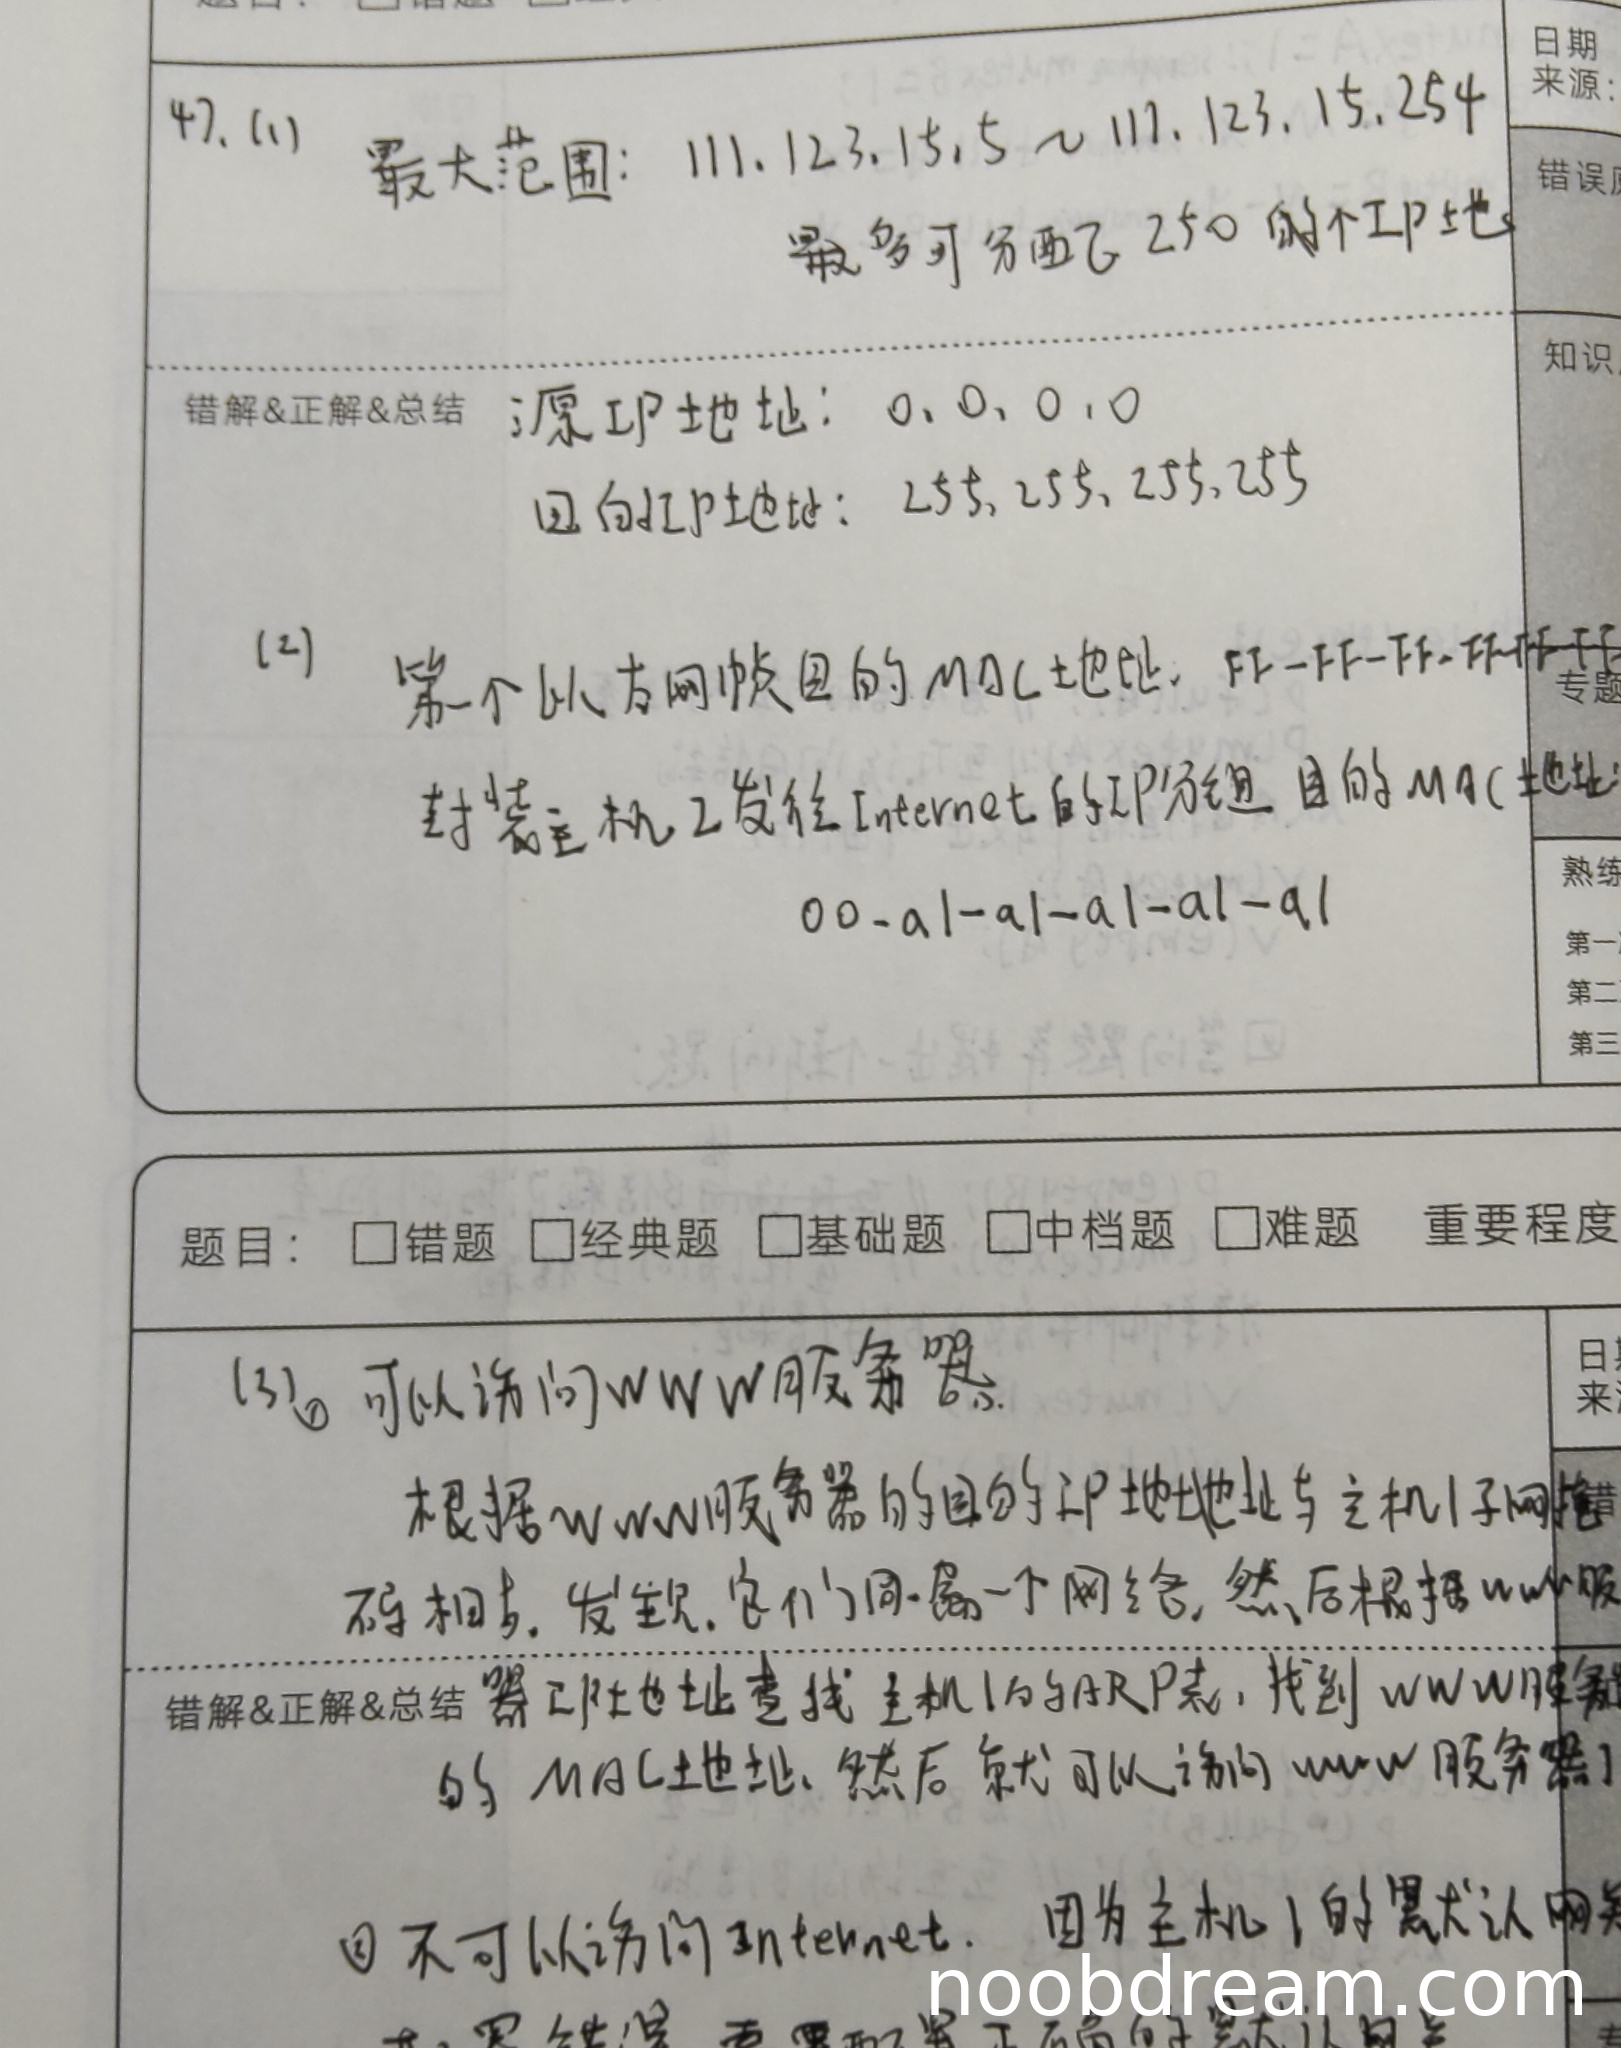 题目： □错题 □经典
日期
来源：
47. (1) 最大范围： 111.123.15.5 ~ 111.123.15.254
最多可分配 250 的个IP地
错误
知识
错解&正解&总结 源IP地址： 0.0.0.0
目的IP地址： 255.255.255.255
(2) 第一个以太网帧目的MAC地址. FF-FF-FF-FF-FF-FF
专题
封装主机2发往Internet的IP分组 目的MAC地址:
00-a1-a1-a1-a1-a1
熟练
第一
第二
第三
题目： □错题 □经典题 □基础题 □中档题 □难题 重要程度
日期
来源
(3)① 可以访问WWW服务器.
根据WWW服务器的目的IP地地址与主机1子网掩
错
码相与. 发现. 它们同属一个网络, 然后根据WWW服
错解&正解&总结 器IP地址查找主机1的ARP表, 找到WWW服务器
的MAC地址. 然后就可以访问WWW服务器了
② 不可以访问Internet. 因为主机1的默认网关
配置错误 需要配置正确的默认网关
noobdream.com